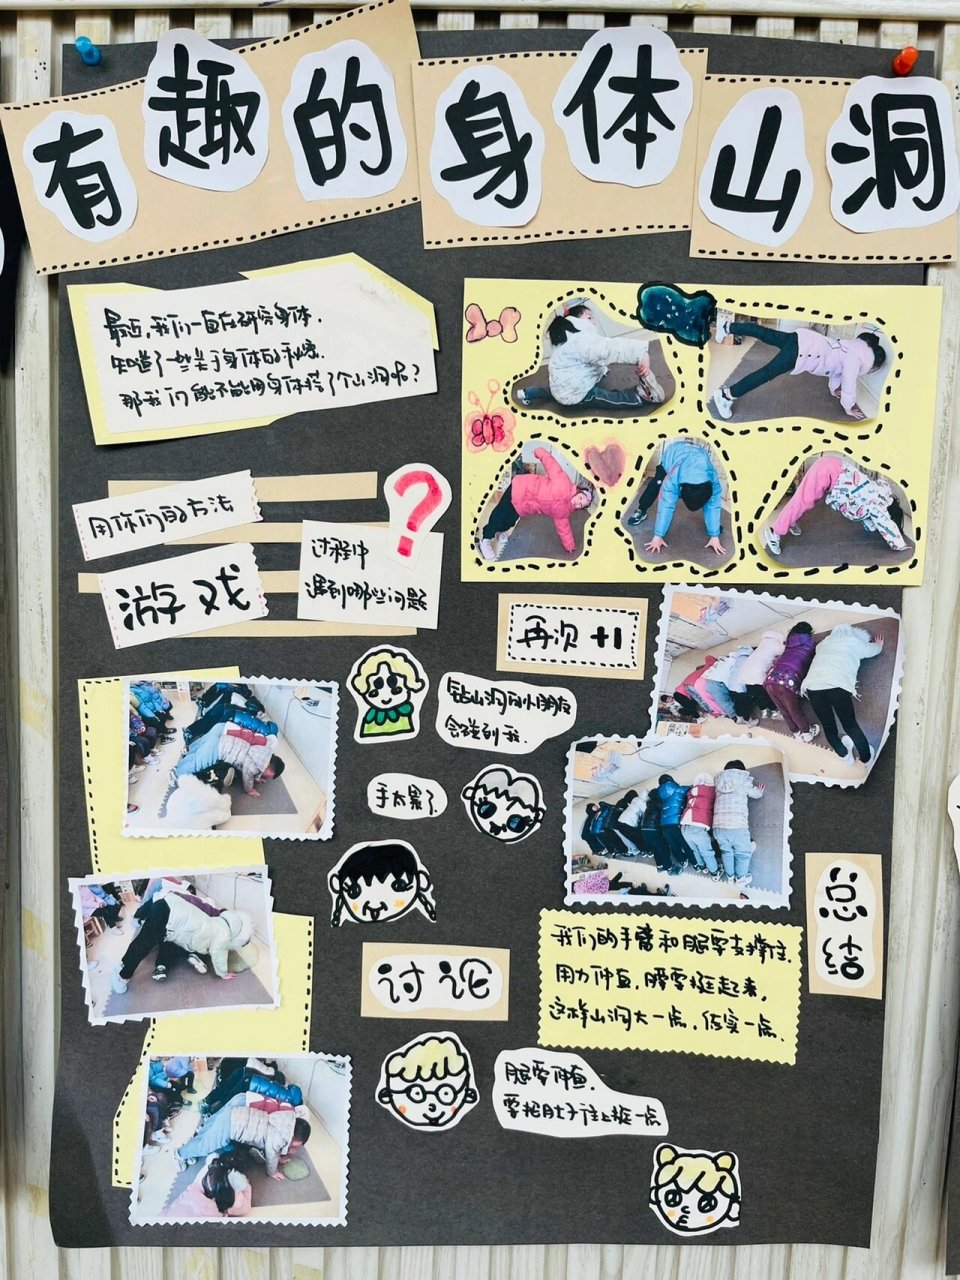 有趣的身体山洞
最近,我们一直在研究身体.
知道了一些关于身体的秘密.
那我们能不能用身体搭了个山洞呢?
用你们的方法
游戏
?
过程中
遇到哪些问题
再次+1
钻山洞的小朋友
会碰到我.
手太累了.
讨论
腿要伸直.
要把肚子往上挺一点
总结
我们的手臂和腿要支撑住.
用力伸直,腰要挺起来,
这样山洞大一点,结实一点.